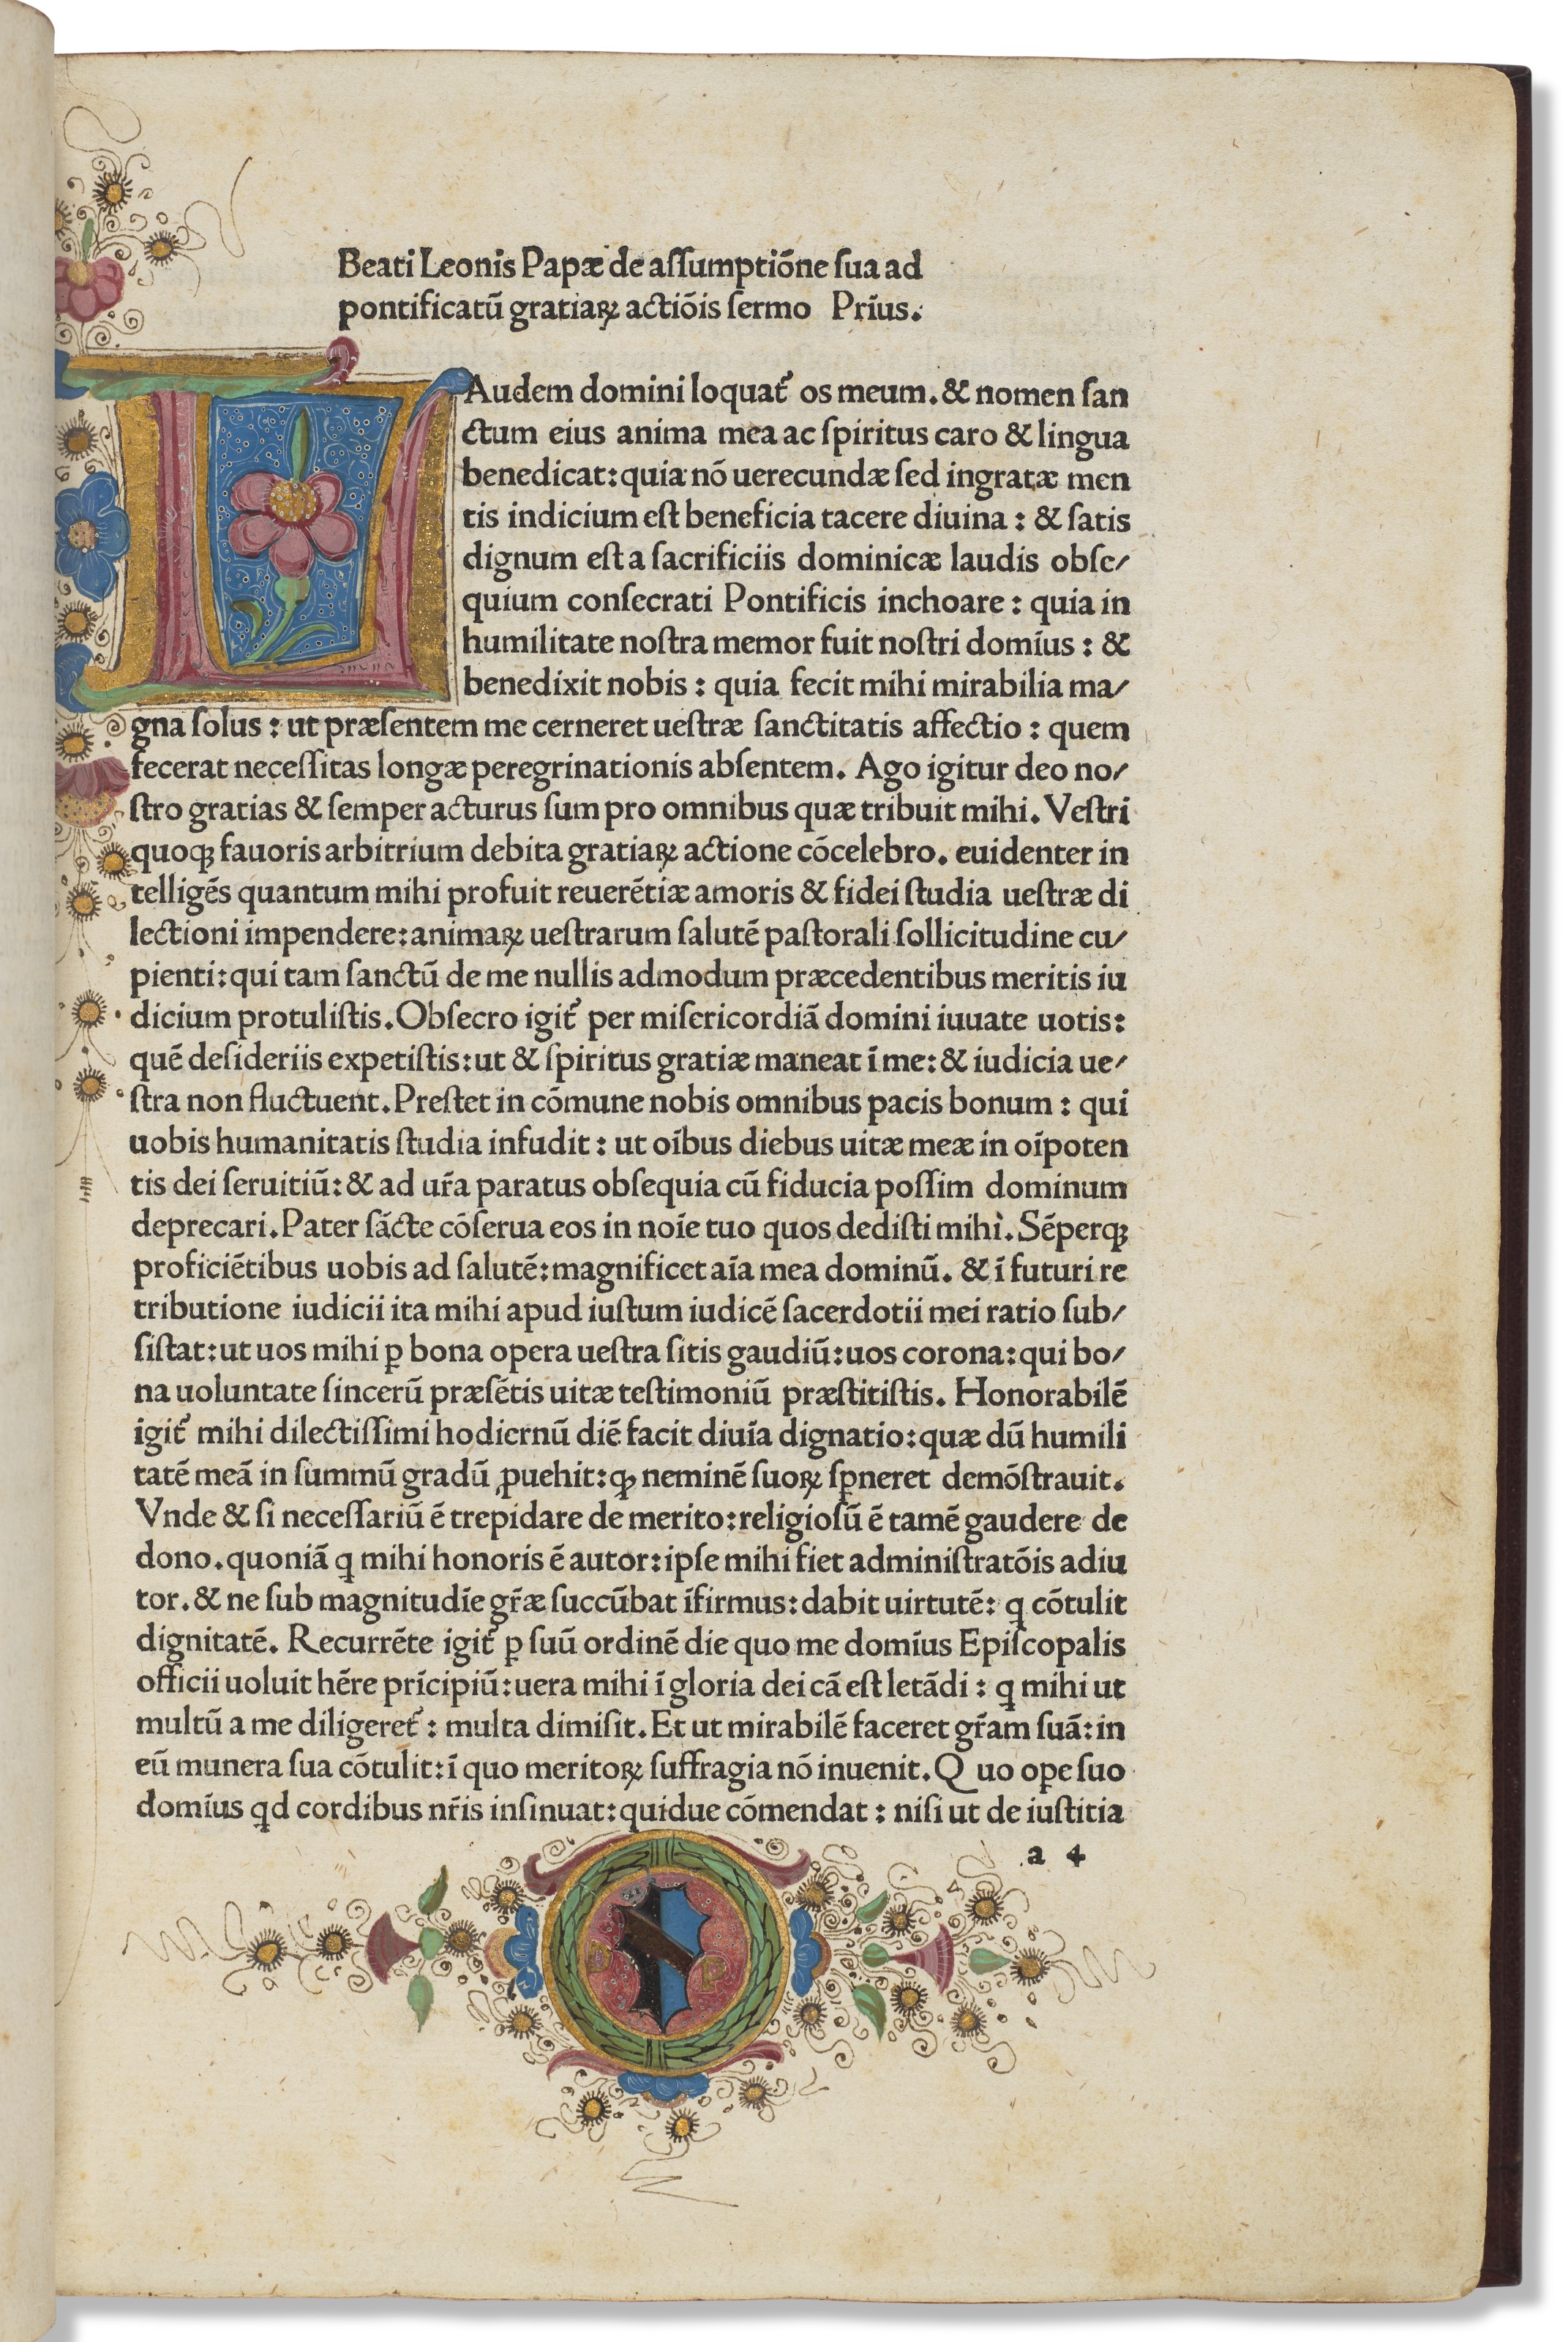 Beati Leonis Papæ de aſſumptiōne ſua ad
pontificatū gratiaꝝ actiōis ſermo Prīus.
LAudem domini loquat᷑ os meum. & nomen ſan
ctum eius anima mea ac ſpiritus caro & lingua
benedicat: quia nō uerecundæ ſed ingratæ men
tis indicium eſt beneficia tacere diuina : & ſatis
dignum eſt a ſacrificiis dominicæ laudis obſe/
quium conſecrati Pontificis inchoare : quia in
humilitate noſtra memor fuit noſtri domīus : &
benedixit nobis : quia fecit mihi mirabilia ma/
gna ſolus : ut præſentem me cerneret ueſtræ ſanctitatis affectio : quem
fecerat neceſſitas longæ peregrinationis abſentem. Ago igitur deo no/
ſtro gratias & ſemper acturus ſum pro omnibus quæ tribuit mihi. Veſtri
quoqꝫ fauoris arbitrium debita gratiaꝝ actione cōcelebro. euidenter in
telligēs quantum mihi profuit reuerētiæ amoris & fidei ſtudia ueſtræ di
lectioni impendere: animaꝝ ueſtrarum ſalutē paſtorali ſollicitudine cu/
pienti: qui tam ſanctū de me nullis admodum præcedentibus meritis iu
dicium protuliſtis. Obſecro igit᷑ per miſericordiā domini iuuate uotis:
quē deſideriis expetiſtis: ut & ſpiritus gratiæ maneat ī me: & iudicia ue/
ſtra non fluctuent. Preſtet in cōmune nobis omnibus pacis bonum : qui
uobis humanitatis ſtudia infudit : ut oību​s diebus uitæ meæ in oīpoten
tis dei ſeruitiū: & ad ur̄a paratus obſequia cū fiducia poſſim dominum
deprecari. Pater ſācte cōſerua eos in noīe tuo quos dediſti mihi. Sēperqꝫ
proficiētibus uobis ad ſalutē: magnificet aīa mea dominū. & ī futuri re
tributione iudicii ita mihi apud iuſtum iudicē ſacerdotii mei ratio ſub/
ſiſtat: ut uos mihi ꝑ bona opera ueſtra ſitis gaudiū: uos corona: qui bo/
na uoluntate ſincerū præſētis uitæ teſtimoniū præſtitiſtis. Honorabilē
igit᷑ mihi dilectiſſimi hodiernū diē facit diuīa dignatio: quæ dū humili
tatē meā in ſummū gradū ꝓuehit: ꝙ neminē ſuoꝝ ſꝑneret demōſtrauit.
Vnde & ſi neceſſariū ē trepidare de merito: religioſū ē tamē gaudere de
dono. quoniā ꝗ mihi honoris ē autor: ipſe mihi fiet adminiſtratōis adiu
tor. & ne ſub magnitudīe gr̄æ ſuccūbat īfirmus: dabit uirtutē: ꝗ cōtulit
dignitatē. Recurrēte igit᷑ ꝑ ſuū ordinē die quo me domīus Epiſcopalis
officii uoluit hēre prīcipiū: uera mihi ī gloria dei cā eſt letādi : ꝗ mihi ut
multū a me diligeret᷑ : multa dimiſit. Et ut mirabilē faceret gr̄am ſuā: in
eū munera ſua cōtulit: ī quo meritoꝝ ſuffragia nō inuenit. Q uo oꝑe ſuo
domīus ꝗd cordibus nr̄is inſinuat: quidue cōmendat : niſi ut de iuſtitia
a 4
P P